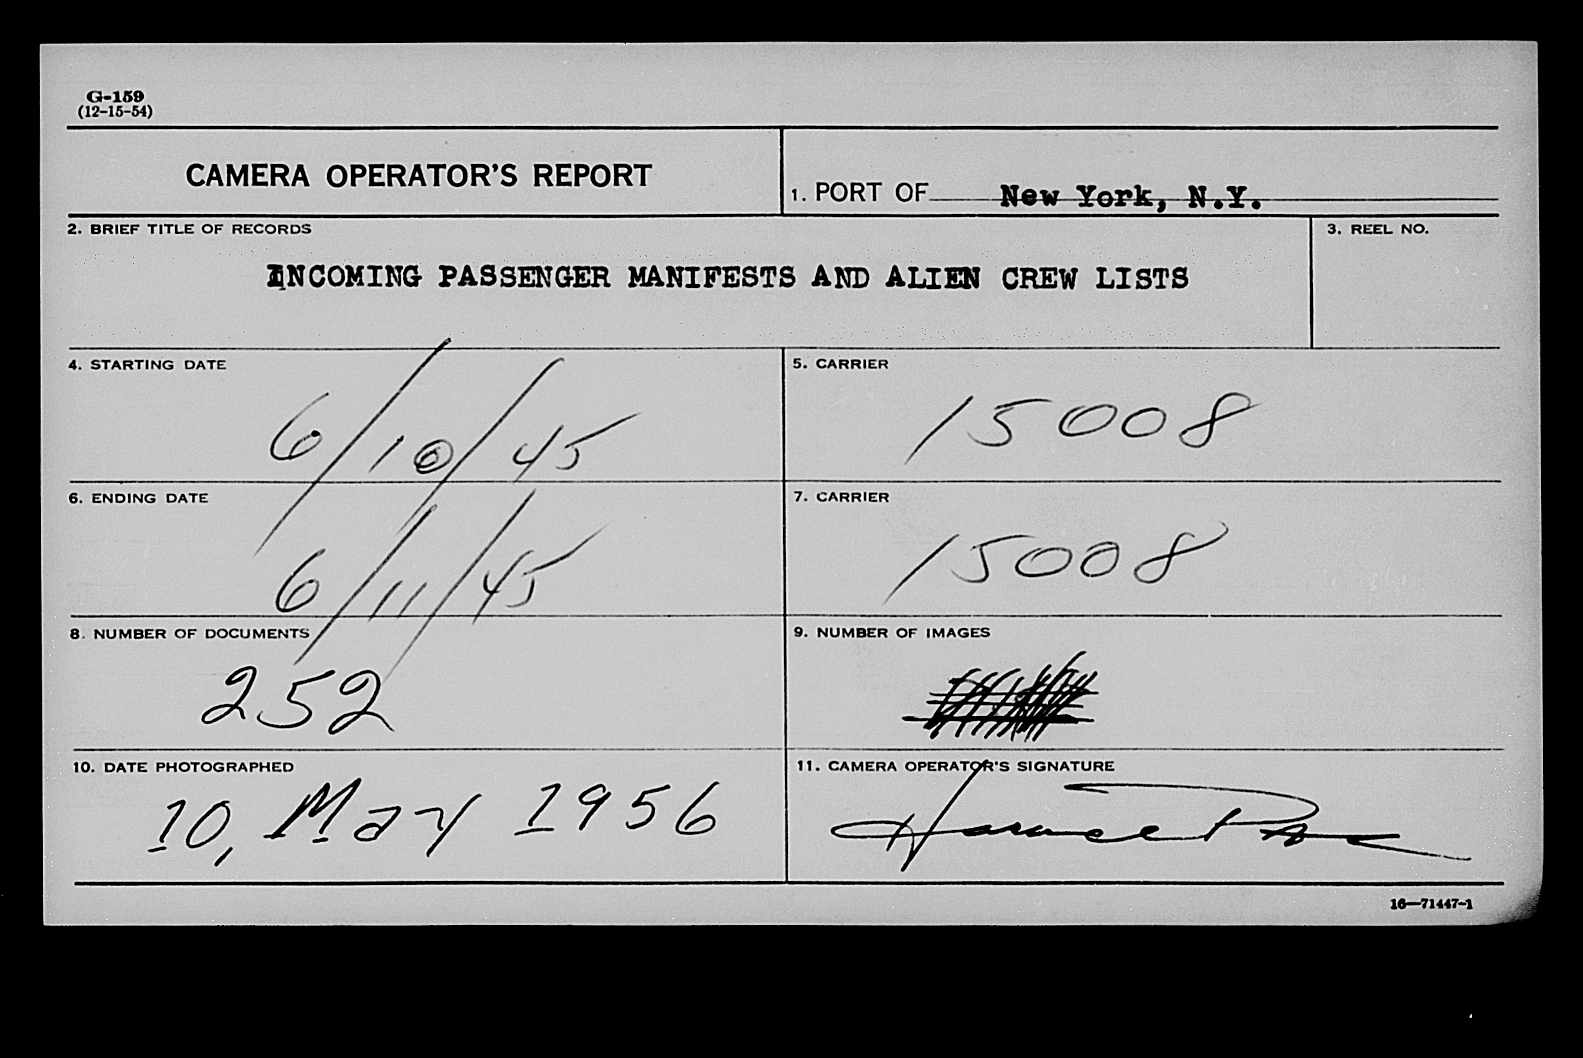 G-159
(12-15-54)
CAMERA OPERATOR'S REPORT
1. PORT OF New York, N.Y.
2. BRIEF TITLE OF RECORDS
INCOMING PASSENGER MANIFESTS AND ALIEN CREW LISTS
3. REEL NO.
4. STARTING DATE
6/10/45
5. CARRIER
15008
6. ENDING DATE
6/11/45
7. CARRIER
15008
8. NUMBER OF DOCUMENTS
252
9. NUMBER OF IMAGES
10. DATE PHOTOGRAPHED
10, May 1956
11. CAMERA OPERATOR'S SIGNATURE
16—71447-1